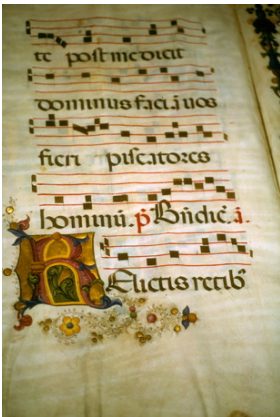 te post me dicit
dominus faciā vos
fieri piscatores
hominū. p̄ Bn̄dic̄. ā.
Relictis retib⁹